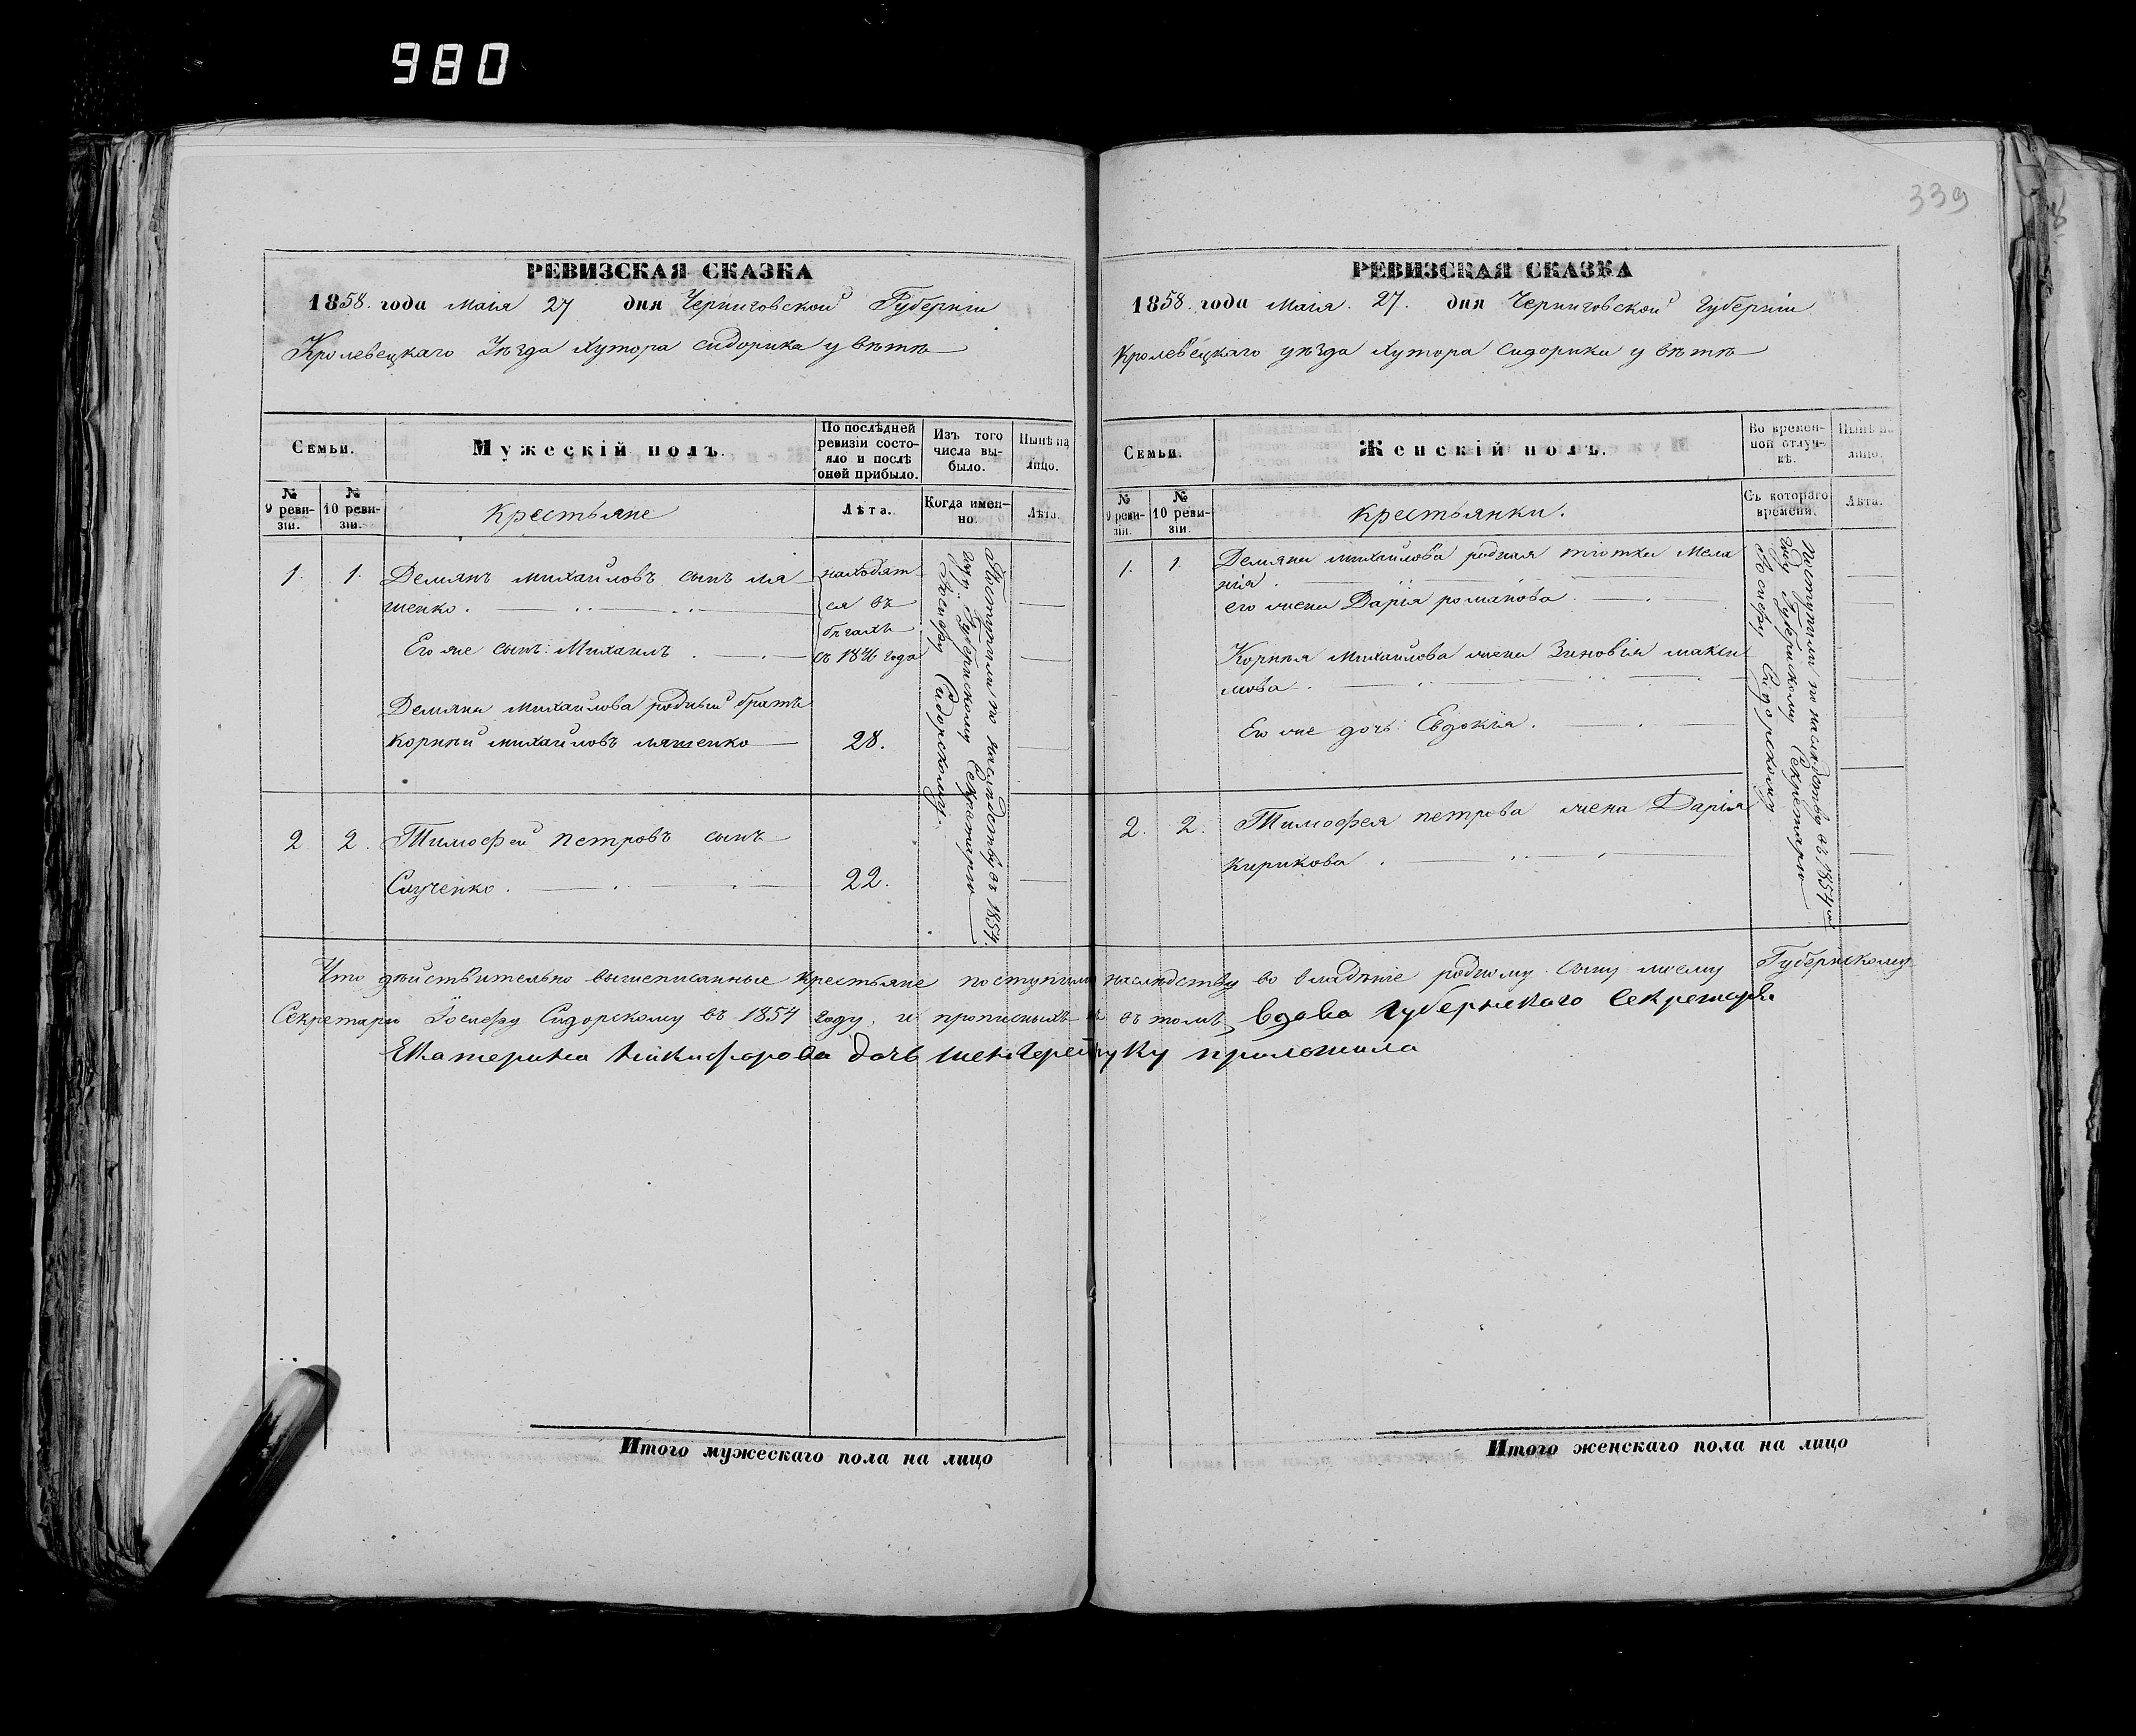 980
339
РЕВИЗСКАЯ СКАЗКА
1858. года Маія 27 дня Черниговской Губерніи
Кролевецкаго Уѣзда Хутора Сидорика
Семьи.
Мужескій полъ.
По послѣдней ревизіи состояло и послѣ оней прибыло.
Изъ того числа выбыло.
Нынѣ на лицо.
№ 9 ревизіи.
№ 10 ревизіи.
Крестьяне
Лѣта.
Когда именно.
Лѣта.
1. 1. Демянъ михайловъ сынъ ля
шенко.
Его же сынъ: Михаилъ
находят
ся въ
бѣгахъ
съ 1846 года
Демяна михайлова родный братъ
Корнѣй михайловъ ляшенко 28.
2. 2. Тимофей петровъ сынъ
22.
Поступили по наслѣдству въ 1854.
году. Губернскому Секретарю
Іосифу Сидорскому.
РЕВИЗСКАЯ СКАЗКА
1858. года Маія. 27. дня Черниговской Губерніи
Кролевецкаго уѣзда Хутора Сидорики
Семьи.
Женскій полъ.
Во временной отлучкѣ.
Нынѣ на лицо.
№ 9 ревизіи.
№ 10 ревизіи.
Крестьянки.
Съ котораго времени.
Лѣта.
1. 1. Демяна михайлова родная тіотка Мела
нія.
его жена Дарія романова
Корнѣя Михайлова жена Зиновія макси
мова
Его же дочь: Евдокія.
2. 2. Тимофея петрова жена Дарія
Кирикова
Поступили по наслѣдству въ 1854
году Губернскому Секретарю
Іосифу Сидорскому
Что дѣйствительно вышеписанные крестьяне поступили наслѣдству во владѣніе родному сыну моему Губернскому
Секретарю Іосифу Сидорскому въ 1854 году, и прописныхъ въ томъ вдова губернскаго Секретаря
Екатерина Никифорова дочь руку приложила
Итого мужескаго пола на лицо
Итого женскаго пола на лицо